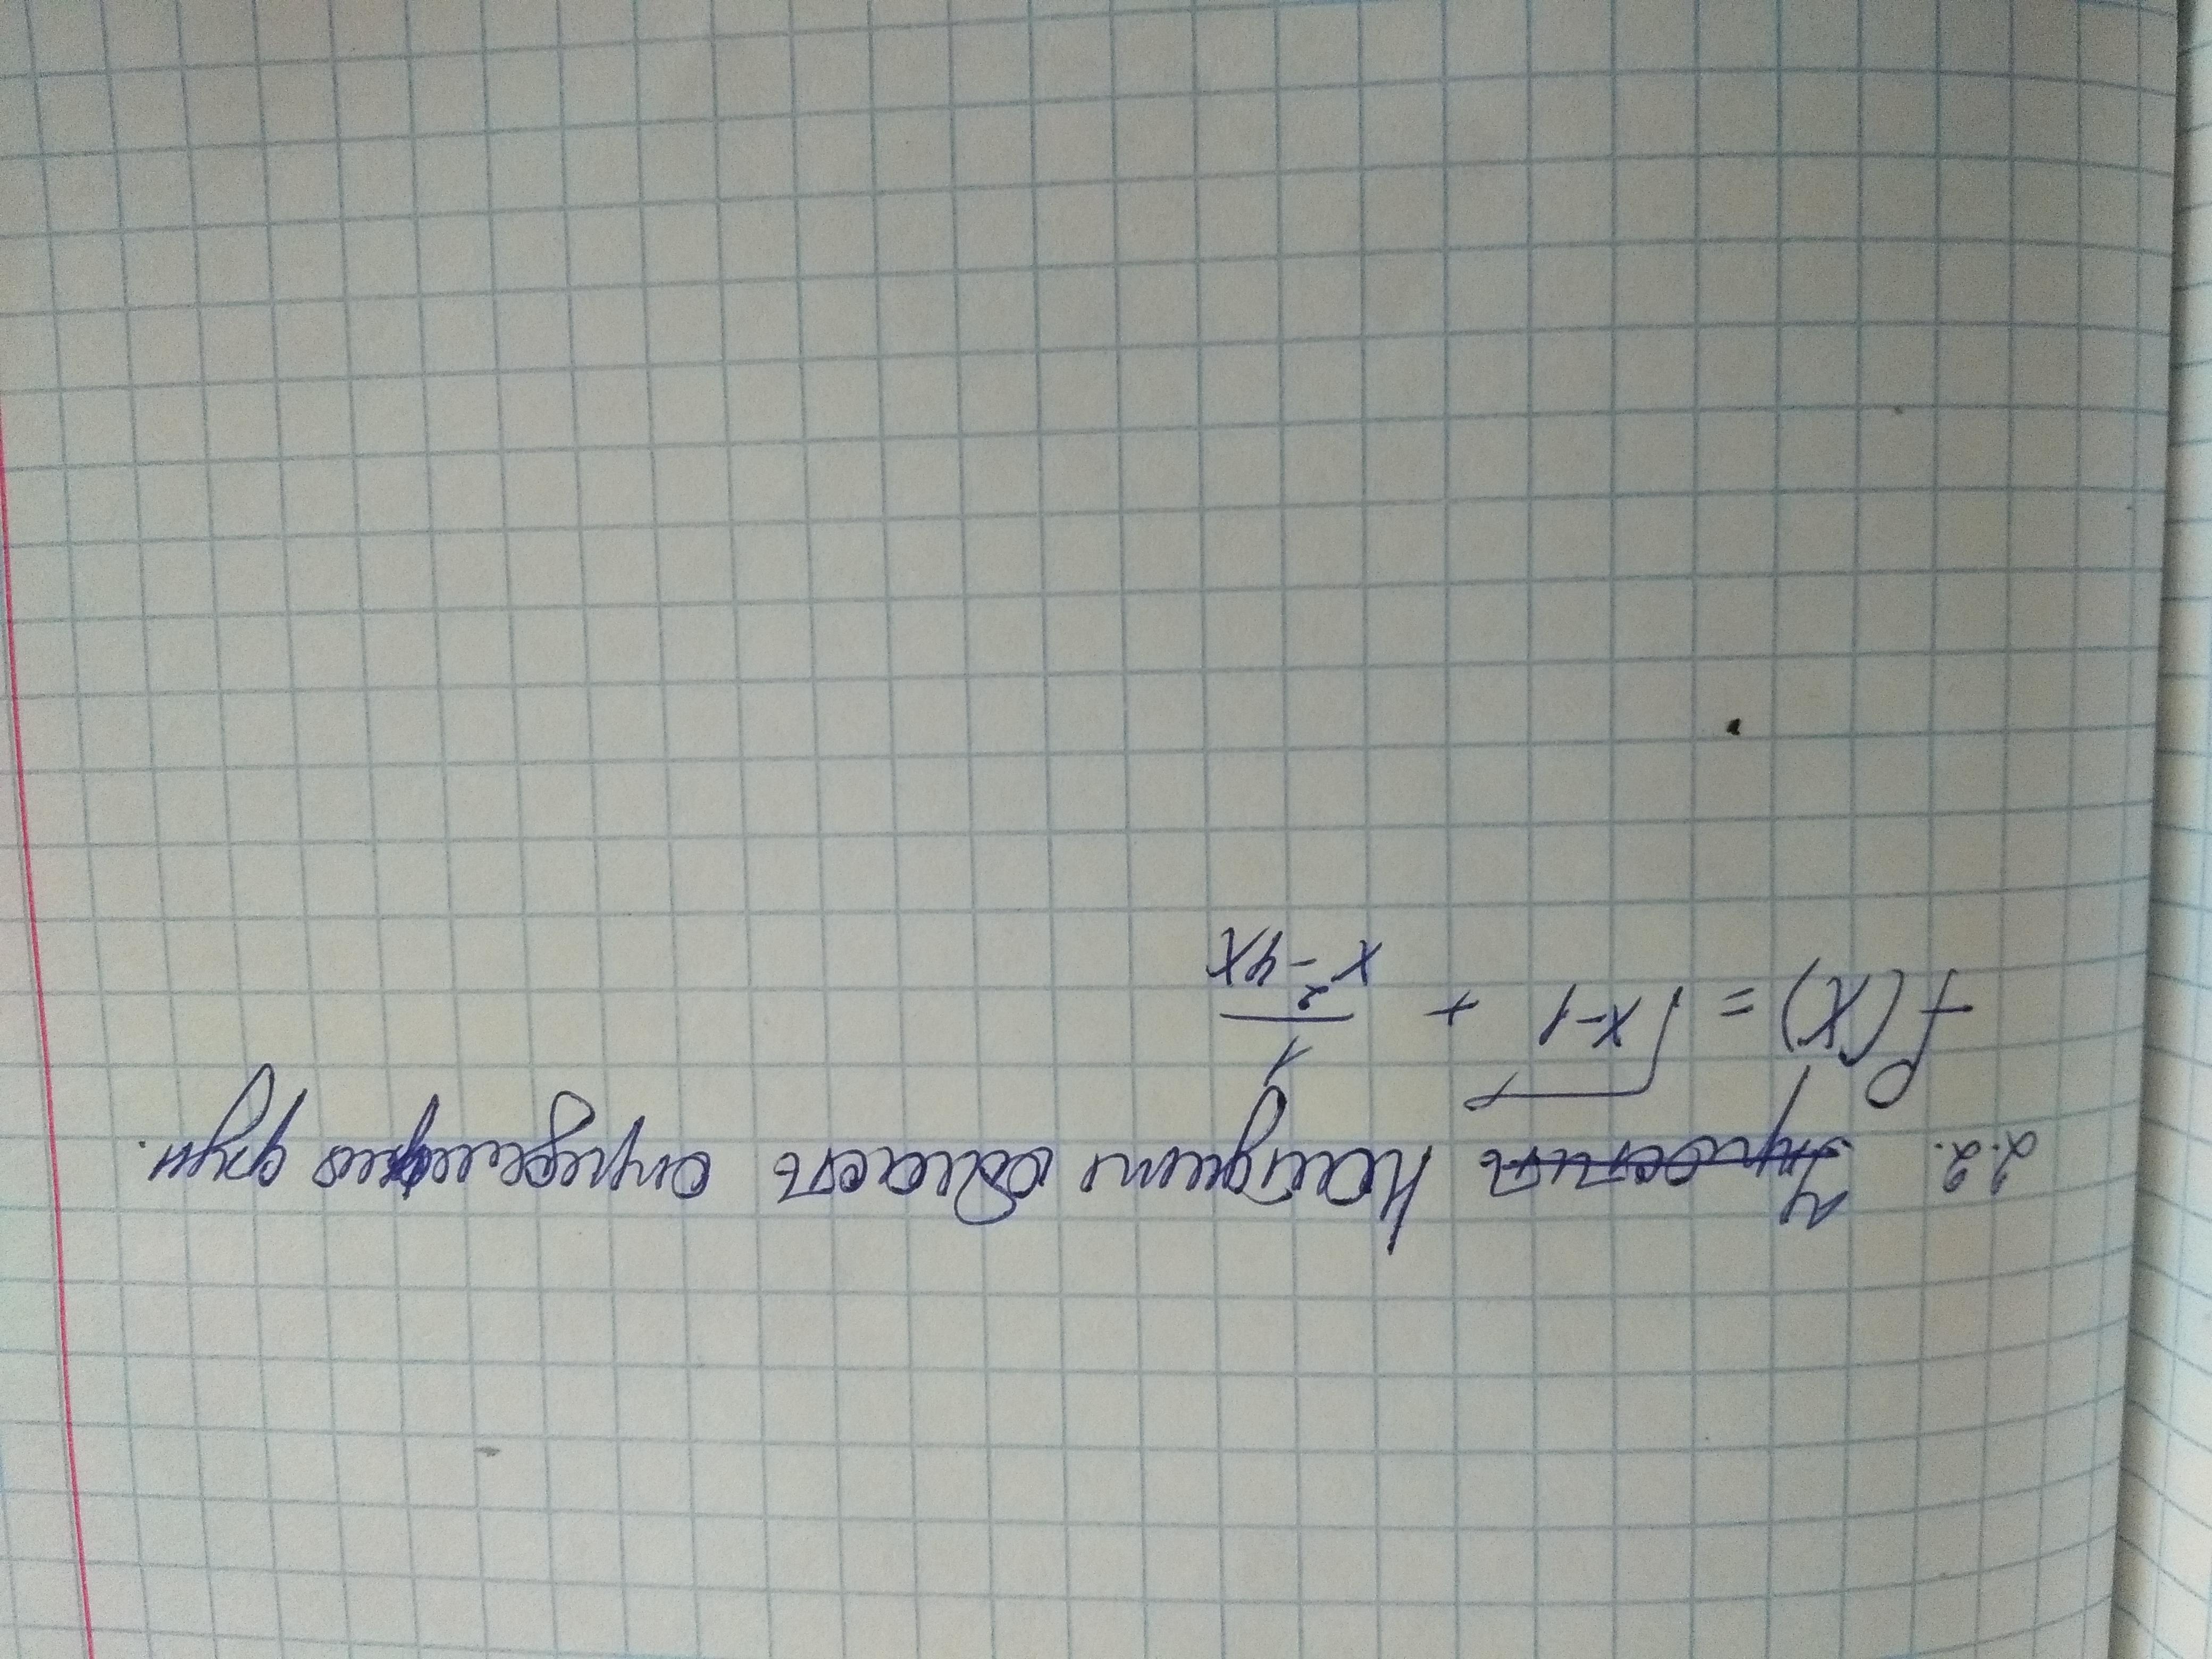 2.2. Упростить Найдите область определения функ.
f(x) = √x-1 + 1/x²-4x